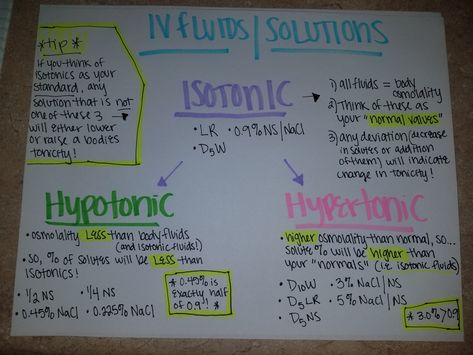 IV FLUIDS/SOLUTIONS
*tip*
If you think of
isotonics as your
standard, any
solution that is not
one of these 3 →
will either lower
or raise a bodies
tonicity!
ISOTONIC
• LR • 0.9% NS/NaCl
• D5W
1) all fluids = body
osmolality
2) Think of these as
your "normal values"
3) any deviation (decrease
in solutes or addition
of them) will indicate
change in tonicity!
Hypotonic
• osmolality Less than body fluids
(and isotonic fluids!)
• so, % of solutes will be Less than
isotonics!
• 1/2 NS • 1/4 NS
• 0.45% NaCl • 0.225% NaCl
* 0.45% is
exactly half
of 0.9! *
Hypertonic
• higher osmolality than normal, so...
solute % will be higher than
your "normals" (i.e. isotonic fluids)
• D10W • 3% NaCl/NS
• D5LR • 5% NaCl/NS
• D5NS
* 3.0% > 0.9